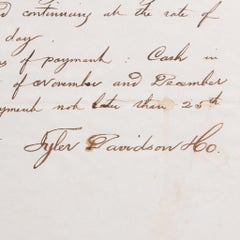 d continuing at the rate of
day.
s of payment: Cash in
of November and December
yment not later than 25th
Tyler Davidson & Co.